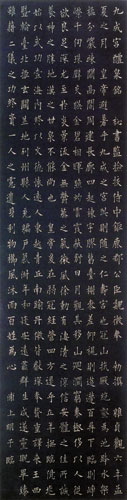 九成宮醴泉銘 秘書監檢校侍中鉅鹿郡公臣魏徵奉 勅撰 維貞觀六年孟
夏之月 皇帝避暑乎九成之宮此則隨之仁壽宮也冠山抗殿絕壑為池跨水架
楹分巖竦闕高閣周建長廊四起棟宇膠葛臺榭參差仰視則迢遰百尋下臨則崢嶸
千仞珠璧交映金碧相暉照灼雲霞蔽虧日月觀其移山迴澗窮泰極侈以人從
欲良足深尤至於炎景流金無鬱蒸之氣微風徐動有淒清之涼信安體之佳所誠
養神之勝地漢之甘泉不能尚也 皇帝爰在弱冠經營四方逮乎立年撫臨億兆
始以武功壹海內終以文德懷遠人東越青丘南踰丹徼皆獻琛奉贄重譯來王西
暨輪臺北拒玄闕並地列州縣人充編戶氣淑年和邇安遠肅群生咸遂靈貺畢臻
雖藉二儀之功終資一人之慮遺身利物櫛風沐雨百姓為心